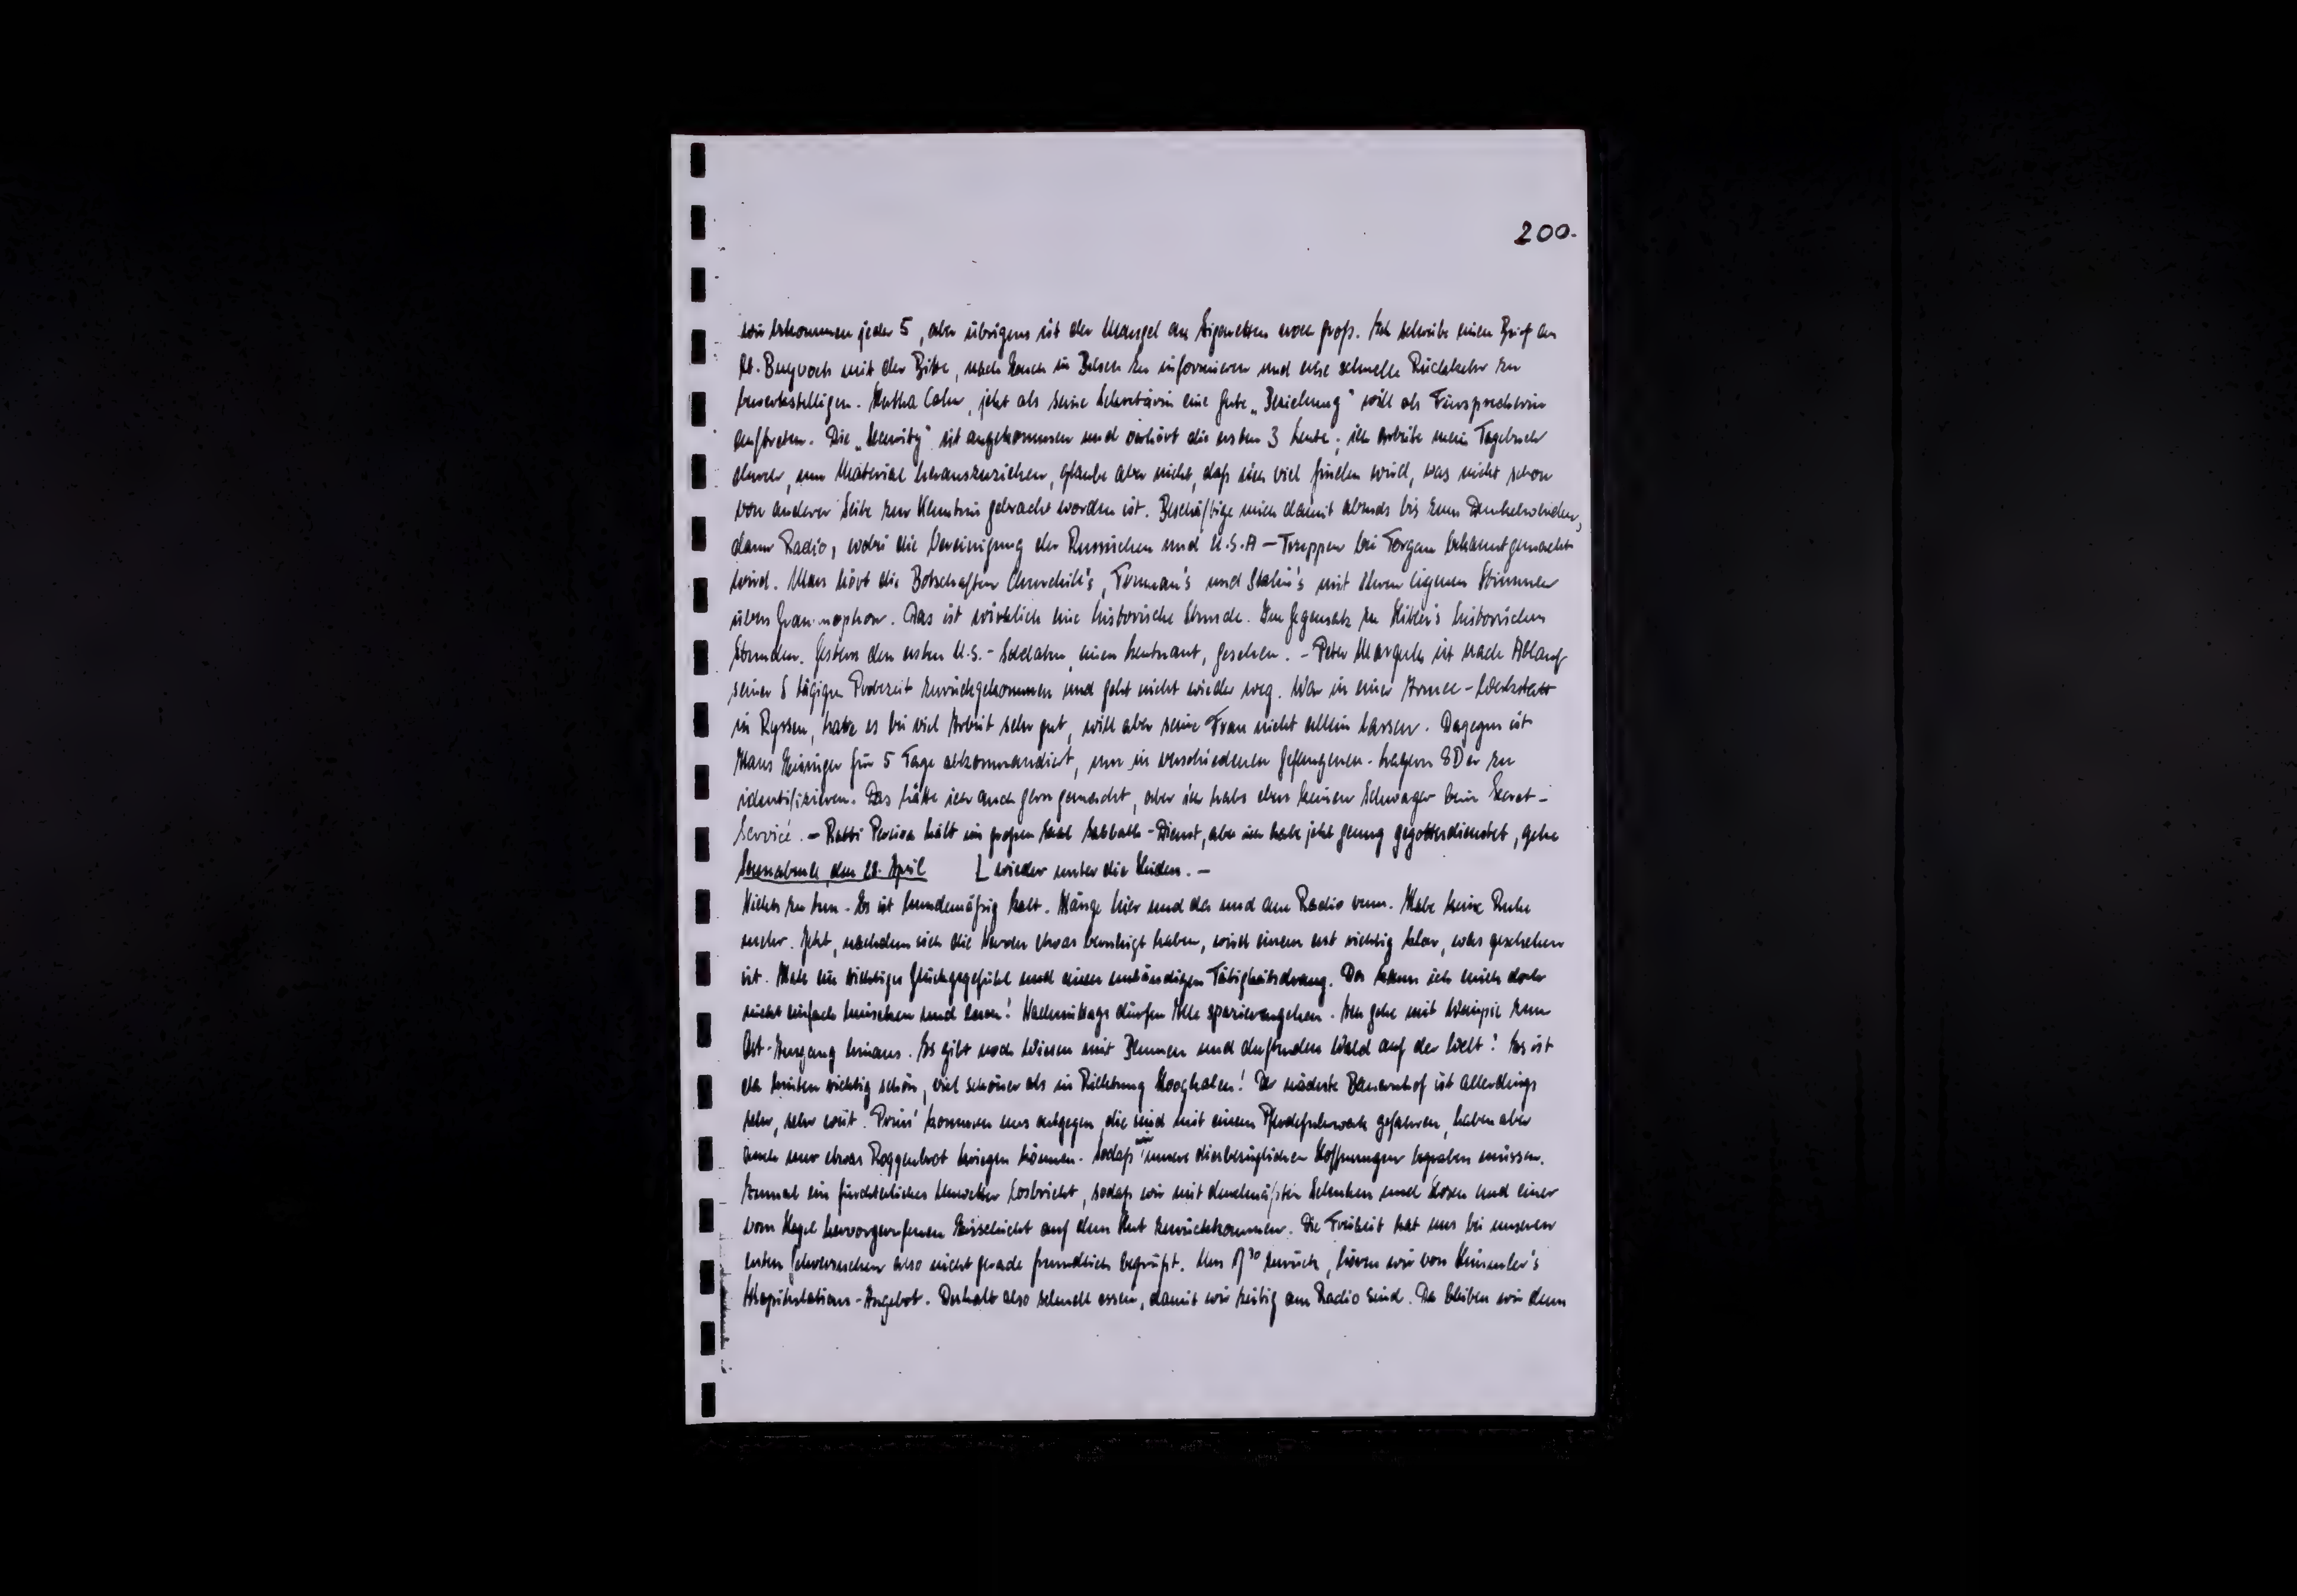 200.
wir bekommen jeder 5, aber übrigens ist der Mangel an Zigaretten noch groß. Ich schreibe einen Brief an
mit der Bitte, nach in Belsen zu informieren und eine schnelle Rückkehr zu
bewerkstelligen. Hertha Cahn, jetzt als seine Sekretärin eine gute „Beziehung" will als Fürsprecherin
auftreten. Die „Security" ist angekommen und verhört die ersten 3 Leute; ich arbeite mein Tagebuch
durch, um Material herauszuziehen, glaube aber nicht, daß sich viel finden wird, was nicht schon
von anderer Seite zur Kenntnis gebracht worden ist. Beschäftige mich damit abends bis zum Dunkelwerden,
dann Radio, wobei die Vereinigung der Russischen und U.S.A-Truppen bei Torgau bekanntgemacht
wird. Man hört die Botschaften Churchill's, Truman's und Stalin's mit ihren eigenen Stimmen
übers Grammophon. Das ist wirklich eine historische Stunde. Im Gegensatz zu Hitler's historischen
Stunden. Gestern den ersten U.S.-Soldaten, einen Leutnant, gesehen. - Peter Marguls ist nach Ablauf
seiner 5 tägigen Probezeit zurückgekommen und geht nicht wieder weg. War in einer Armee-Werkstatt
in Ryssen, hatte es bei viel Arbeit sehr gut, will aber seine Frau nicht allein lassen. Dagegen ist
Hans für 5 Tage abkommandiert, um in verschiedenen Gefangenen-Lagern SDer zu
identifizieren. Das hätte ich auch gern gemacht, aber ich habe eben keinen Schwager beim Secret-
Service. - Rabbi hält im großen Saal Sabbath-Dienst, aber ich habe jetzt genug gegottesdienstet, gehe
Sonnabend, den 28. April ⌊ wieder unter die Heiden. -
Nichts zu tun. Es ist hundemäßig kalt. Hänge hier und da und am Radio rum. Habe keine Ruhe
mehr. Jetzt, nachdem sich die Nerven etwas beruhigt haben, wird einem erst richtig klar, was geschehen
ist. Habe ein richtiges Glücksgefühl und einen unbändigen Tätigkeitsdrang. Da kann ich mich doch
nicht einfach hinsetzen und lesen! Nachmittags dürfen Alle spazierengehen. Ich gehe mit zum
Ost-Ausgang hinaus. Es gibt noch Wiesen mit Blumen und duftenden Wald auf der Welt! Es ist
da hinten richtig schön, viel schöner als in Richtung Hooghalen! Der nächste Bauernhof ist allerdings
sehr, sehr weit. Prins' kommen uns entgegen, die sind mit einem Pferdefuhrwerk gefahren, haben aber
auch nur etwas Roggenbrot kriegen können. Sodaß wir unsere diesbezüglichen Hoffnungen begraben müssen.
Zumal ein fürchterliches Unwetter losbricht, sodaß wir mit durchnäßten Schuhen und Hosen und einer
vom Hagel hervorgerufenen Eisschicht auf dem Hut zurückkommen. Die Freiheit hat uns bei unserem
ersten also nicht gerade freundlich begrüßt. Um zurück, hören wir von Himmler's
Kapitulations-Angebot. Deshalb also schnell essen, damit wir zeitig am Radio sind. Da bleiben wir denn